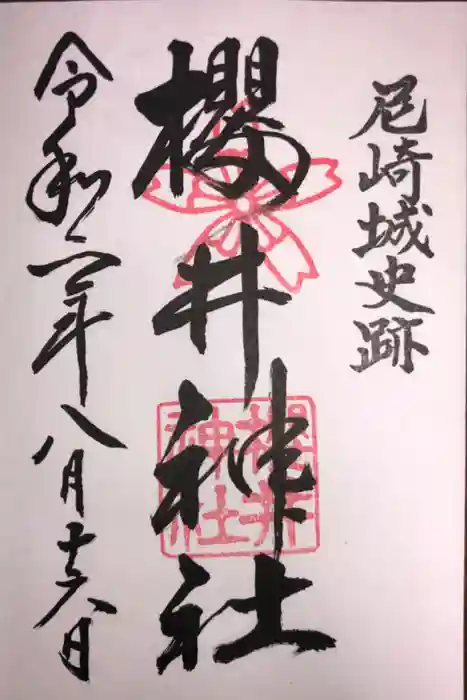 尼崎城史跡
櫻井神社
櫻井
神社
令和二年八月十六日